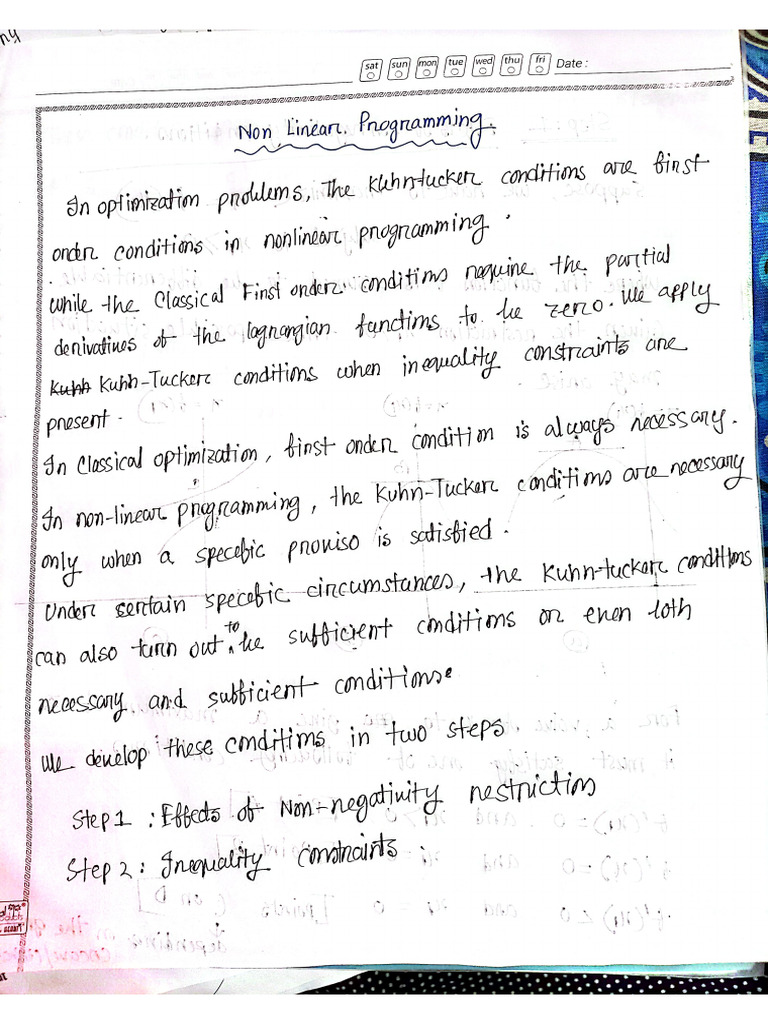 sat sun mon tue wed thu fri Date :
Non Linear Programming.
In optimization problems, The Kuhn-tucker conditions are first
order conditions in nonlinear programming.
while the Classical First order conditions require the partial
derivatives of the lagrangian functions to be zero. We apply
Kuhn Kuhn-Tucker conditions when inequality constraints are
present.
In Classical optimization, first order condition is always necessary.
In non-linear programming, the Kuhn-Tucker conditions are necessary
only when a specific proviso is satisfied.
Under certain specific circumstances, the Kuhn-tucker conditions
can also turn out to be sufficient conditions or even both
necessary and sufficient conditions.
We develop these conditions in two steps
Step 1 : Effects of Non-negativity restriction
Step 2 : Inequality constraints.